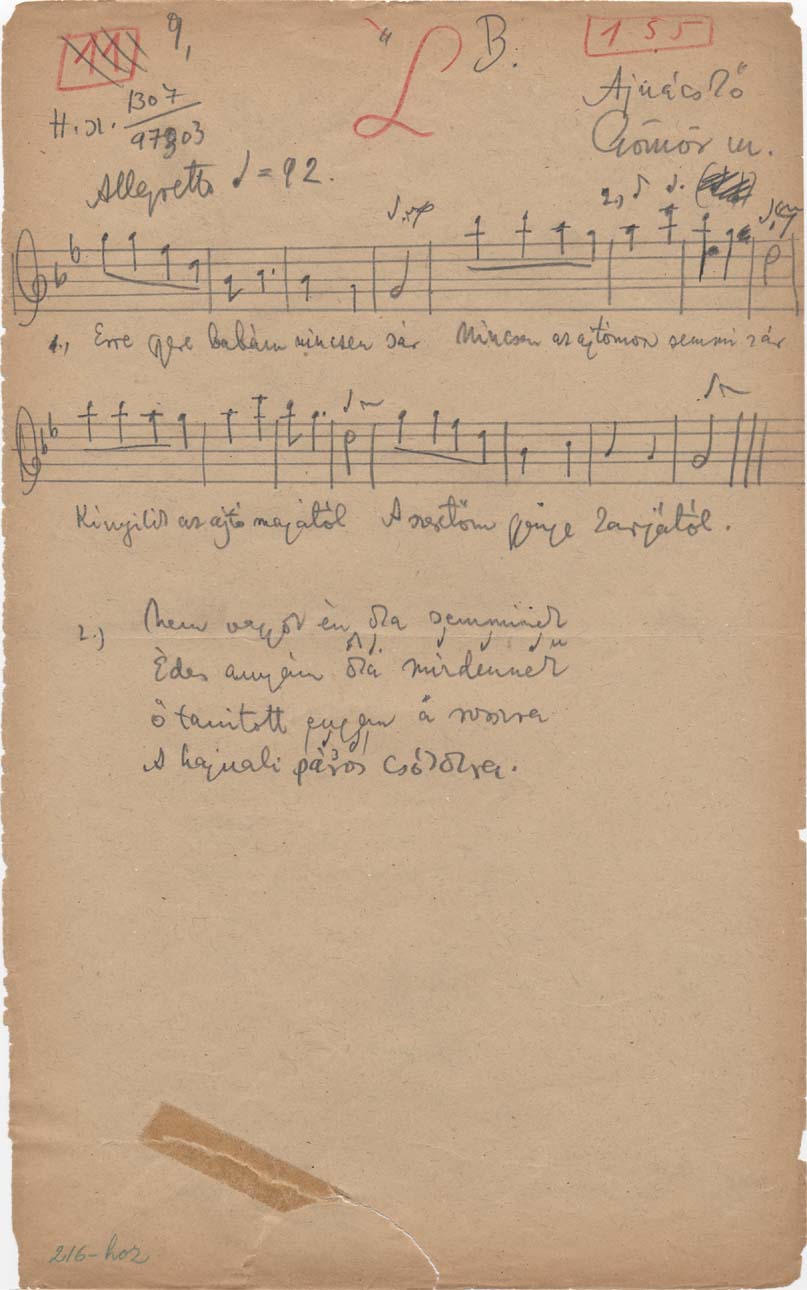 11 9, B. 155
H. sz. 1307
97303
Ajnácskő
Gömör m.
Allegretto ♩ = 92.
2,
1., Erre gyere babám nincsen sár Nincsen az ajtómon semmi zár
Kinyilik az ajtó magától A szeretőm gyenge karjától.
2.) Nem vagyok én oka semminek
Édes anyám oka mindennek
ő tanitott engem a rosszra
A hajnali páros csókokra.
216-hoz